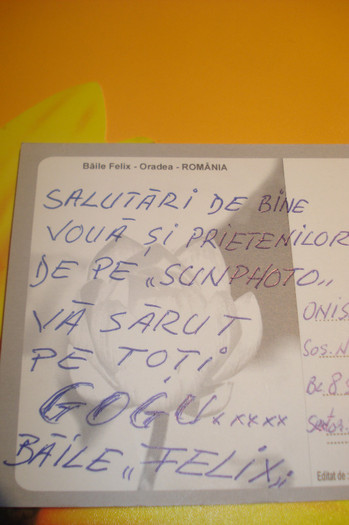 Băile Felix - Oradea - ROMÂNIA
SALUTĂRI DE BINE
VOUĂ ȘI PRIETENILOR
DE PE „SUNPHOTO„
VĂ SĂRUT
PE TOȚI
GOGU xxxxx
BĂILE „FELIX„
ONIS
Șos. N
BL. 8
Sector
Editat de :